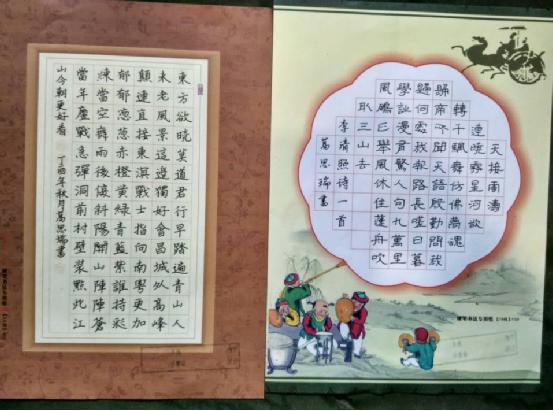 東方欲曉莫道君行早踏遍青山人
未老風景這邊獨好會昌城外高峰
顛連直接東溟戰士指向南粵更加
郁郁葱葱赤橙黃綠青藍紫誰持彩
練當空舞雨後復斜陽關山陣陣蒼
當年鏖戰急彈洞前村壁裝點此江
山今朝更好看 丁酉年秋月葛思瑞書
天接雨濤
連曉霧星河欲
轉千帆舞仿佛夢魂
歸帝所聞天語殷勤問我
歸何處我報路長嗟日暮
學詩漫有驚人句九萬里
風鵬正舉風休住蓬舟吹
取三山去
李清照詩一首
葛思瑞書